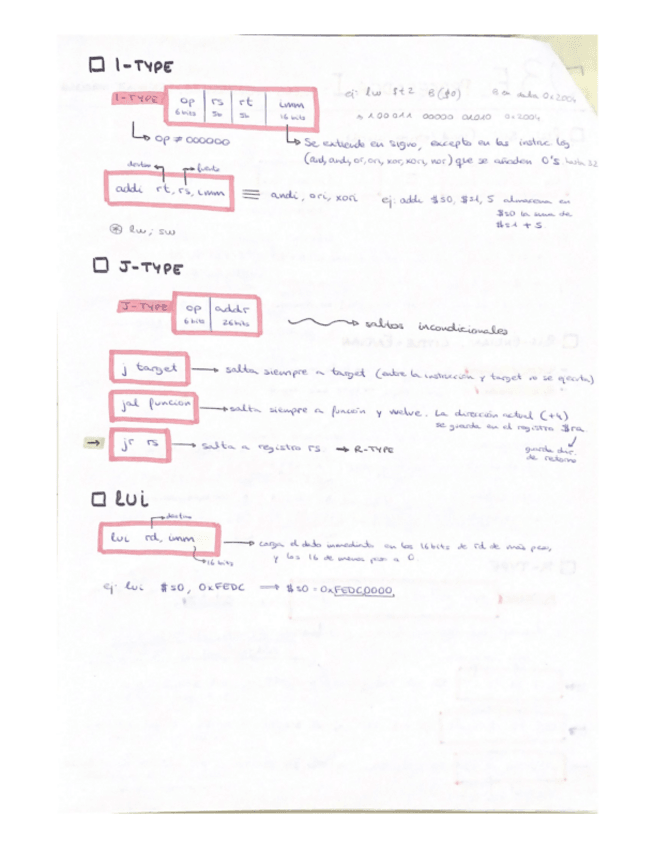 I-TYPE
I-TYPE op rs rt imm
6 bits 5b 5b 16 bits
ej: lw $t2 B($0) B en dir. 0x2004
→ 100011 00000 01010 0x2004
↳ op ≠ 000000
↳ Se extiende en signo, excepto en las instruc. log
(and, andi, or, ori, xor, xori, nor) que se añaden 0's hasta 32
destino fuente
addi rt, rs, imm ≡ andi, ori, xori
ej: addi $s0, $s1, 5 almacena en
$s0 la suma de
$s1 + 5
lw, sw
J-TYPE
J-TYPE op addr
6 bits 26 bits
→ saltos incondicionales
j target → salta siempre a target (entre la instrucción y target no se ejecuta)
jal funcion → salta siempre a función y vuelve. La dirección actual (+4)
se guarda en el registro $ra
→ jr rs → salta a registro rs → R-TYPE
guarda dir.
de retorno
LUI
→ destino
lui rd, imm → carga el dato inmediato en los 16 bits de rd de más peso,
→ 16 bits
y los 16 de menos peso a 0.
ej: lui $s0, 0xFEDC → $s0 = 0xFEDC0000